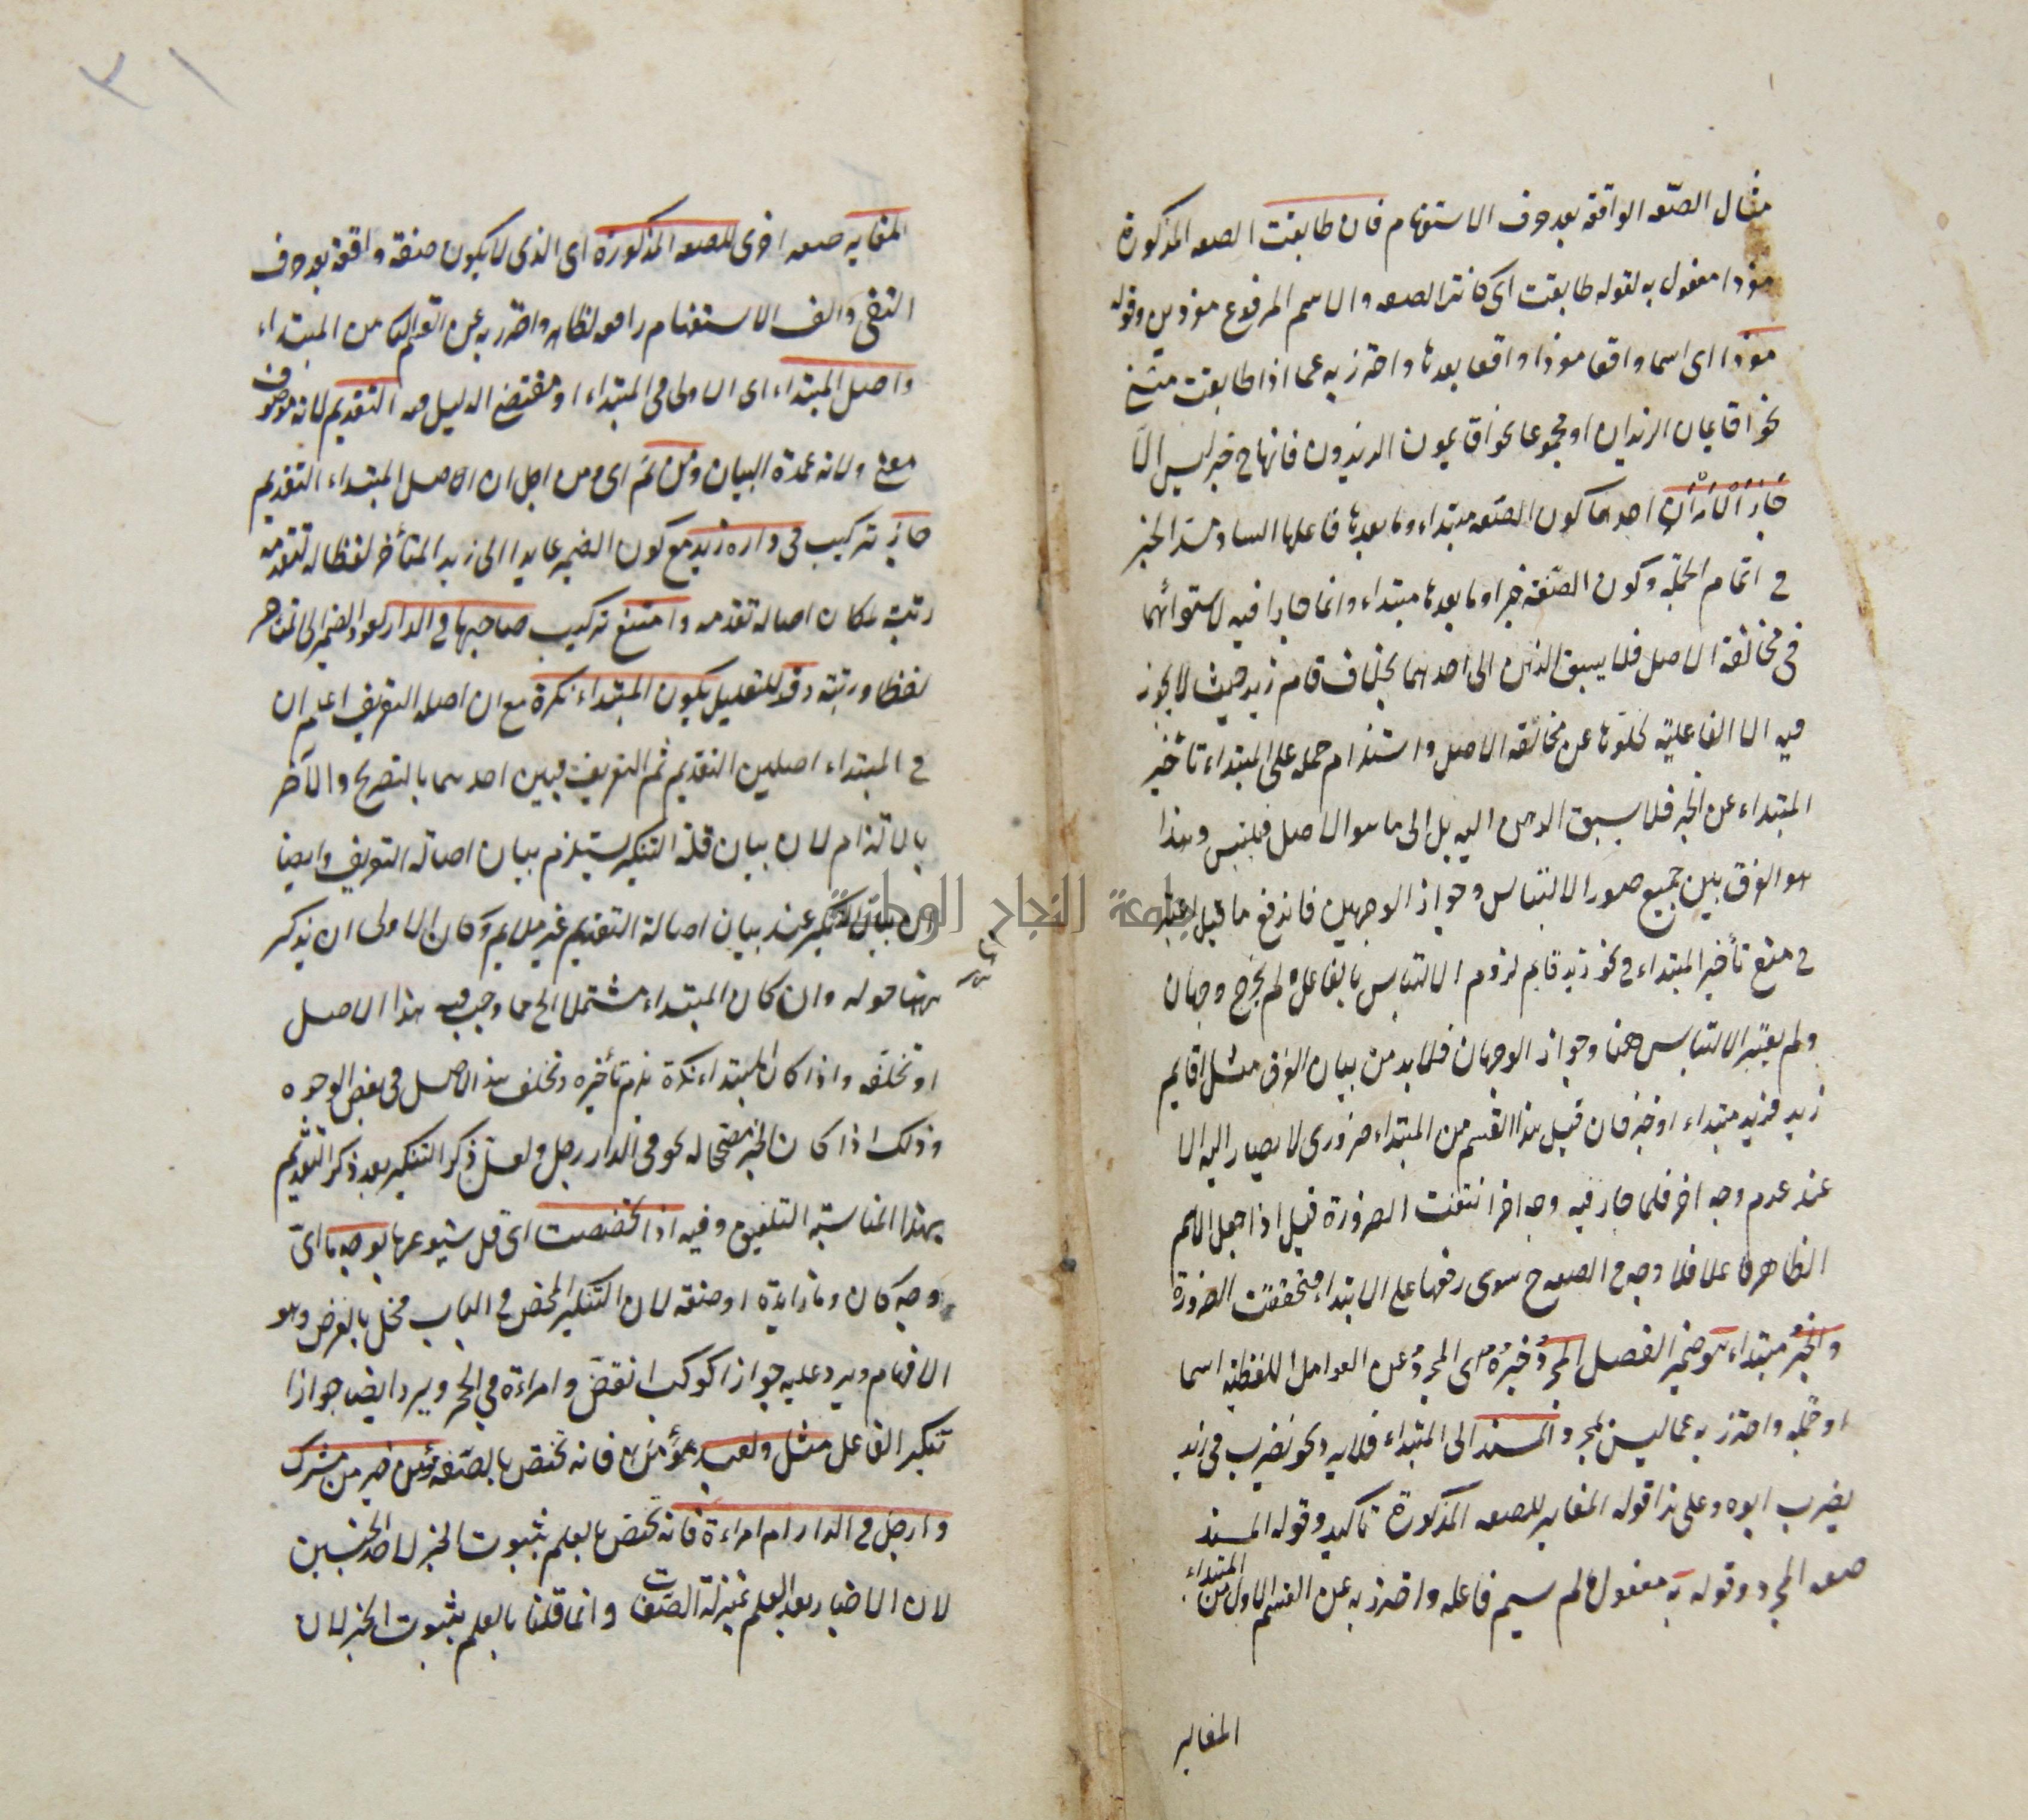 مثال الصفة الواقعة بعد حرف الاستفهام فان طابقت الصفة المذكورة
مفردا مفعول به لقوله طابقت اى كانت الصفة والاسم المرفوع مفردين وقوله
مفردا اى اسما واقعا مفردا واقعا بعدها واحترز به عما اذا طابقت مثنى
نحو اقايمان الزيدان او مجموعا نحو اقايمون الزيدون فانها ح خبر ليس الا
جَازَ الْاَمْرَانِ احدهما كون الصفة مبتداء وما بعدها فاعلها الساد مسد الخبر
فى اتمام الجملة وكون الصفة خبرا وما بعدها مبتداء وانما جازا فيه لاستوائهما
فى مخالفة الاصل فلا يسبق الذهن الى احدهما بخلاف قام زيد حيث لا يجوز
فيه الا الفاعلية لخلوها عن مخالفة الاصل واستلزام حمله على المبتداء تأخير
المبتداء عن الخبر فلا يسبق الذهن اليه بل الى ما هو الاصل فيلتبس وهذا
هو الفرق بين جميع صور الالتباس وجواز الوجهين فاندفع ما قيل اعتبر
فى منع تأخير المبتداء فى نحو زيد قايم لزوم الالتباس بالفاعل ولم يخرج وجهان
ولم يعتبر الالتباس هنا وجواز الوجهان فلا بد من بيان الفرق مثل اقايم
زيد فزيد مبتداء او خبر فان قيل هذا القسم من المبتداء ضرورى لا يصار اليه الا
عند عدم وجه اخر فلما جاز فيه وجه اخر انتفت الضرورة قيل اذا جعل الاسم
الظاهر فاعلا فلا وجه فى الصفة ح سوى رفعها على الابتداء فتحققت الضرورة
والخبر مبتداء هو ضمير الفصل المجرد خبره اى المجرد عن العوامل اللفظية اسما
او جملة واحترز به عما ليس بمجرد المسند الى المبتداء فلا يرد نحو يضرب فى زيد
يضرب ابوه وعلى هذا قوله المغاير للصفة المذكورة تأكيد وقوله المسند
صفة المجرد وقوله به مفعول ما لم يسم فاعله واحترز به عن القسم الاول من المبتداء
المغاير
٣١
المغاير صفة اخرى للصفة المذكورة اى الذى لا يكون صفة واقعة بعد حرف
النفى والف الاستفهام رافعة لظاهر واحترز به عن القسم الثانى من المبتداء
واصل المبتداء اى الاولى فى المبتداء او مقتضى الدليل فيه التقديم لانه موصوف
معنى ولانه عمدة البيان ومن ثم اى ومن اجل ان الاصل المبتداء التقديم
جاز تركيب فى داره زيد مع كون الضمير عايدا الى زيد المتأخر لفظا له لتقدمه
رتبة لمكان اصالة تقدمه وامتنع تركيب صاحبها فى الدار لعود الضمير الى المتأخر
لفظا ورتبة وقد للتقليل يكون المبتداء نكرة مع ان اصله التعريف اعلم ان
فى المبتداء اصلين التقديم ثم التعريف فبين احدهما بالتصريح والآخر
بالالتزام لان بيان قلة التنكير يستلزم بيان اصالة التعريف وايضا
ان بيان التنكير عند بيان اصالة التقديم غير ملايم وكان الاولى ان يذكر
ههنا قوله وان كان المبتداء مشتملا الى ما وجب فيه هذا الاصل
او تخلف واذا كان المبتداء نكرة يلزم تأخيره وتخلف هذا الاصل فى بعض الوجوه
وذلك اذا كان الخبر مصححا له نحو فى الدار رجل ولعل ذكر التنكير بعد ذكر التقديم
بهذا المناسبة التلفيق وفيه اذا تخصصت اى قل شيوعها بوجه ما اى
وجه كان وما زايدة او صفة لان التنكير المحض فى الباب مخل بالغرض وهو
الافهام ويرد عليه جواز كوكب انقض وامراءة فى الحر ويرد ايضا جواز
تنكير الفاعل مثل ولعبد مؤمن فانه تخصص بالصفة مؤمن خير من مشرك
وارجل فى الدار ام امراءة فانه تخصص بالعلم بثبوت الخبر لاحد الجنسين
لان الاخبار بعد العلم بمنزلة الصفات وانما قلنا بالعلم بثبوت الخبر لان
جامعة النجاح الوطنية